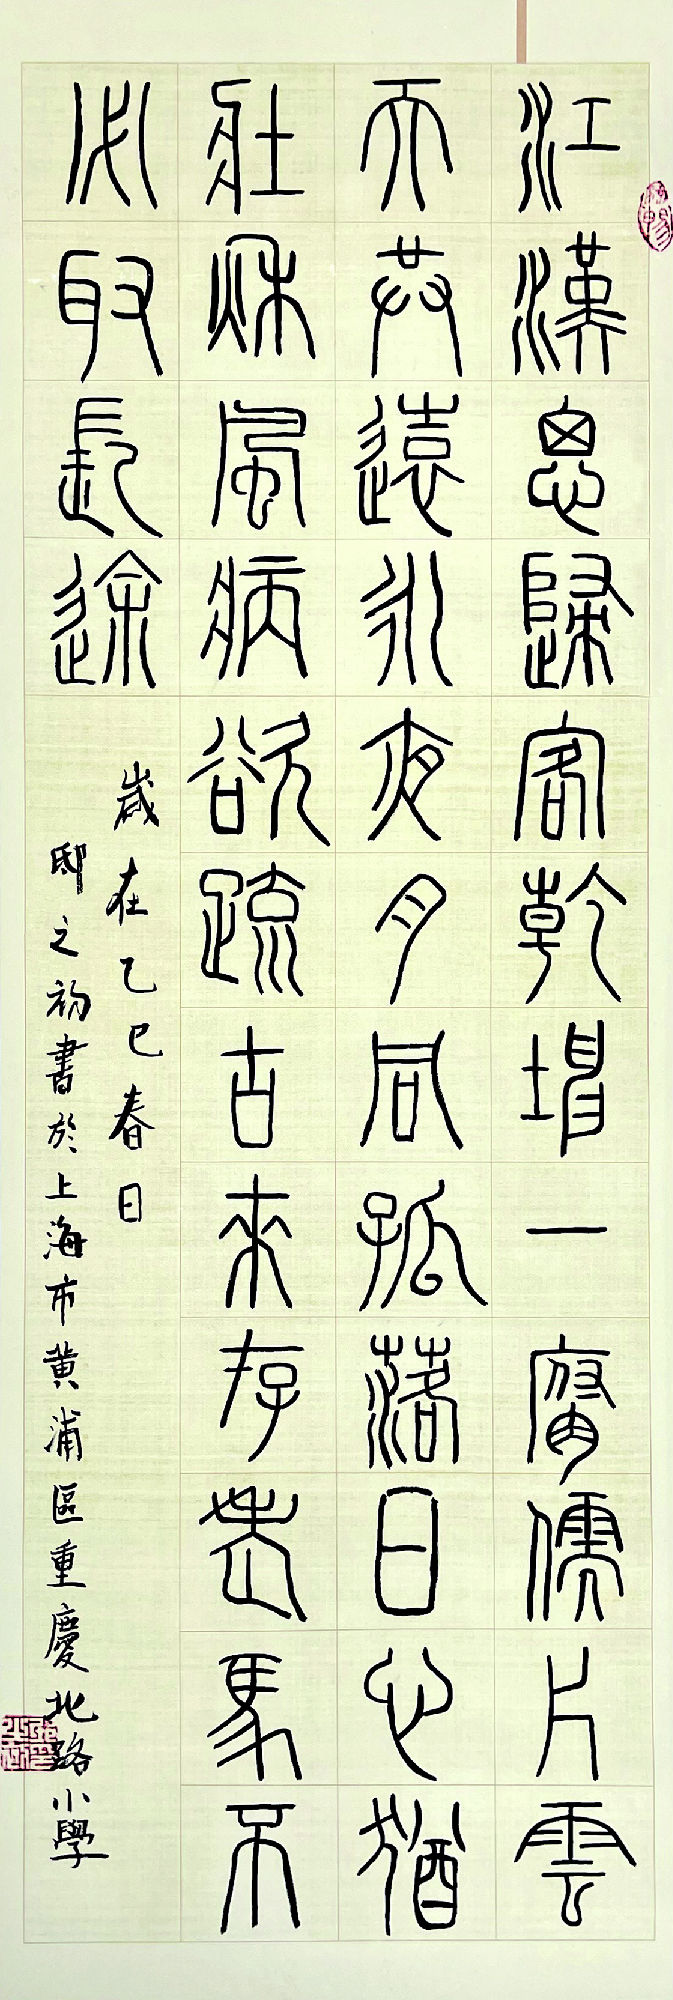 江漢思歸客乾坤一腐儒片雲
天共遠永夜月同孤落日心猶
壯秌風病欲疏古來存老馬不
必取長途
歲在乙巳春日
邸之初書於上海市黄浦區重慶北路小學